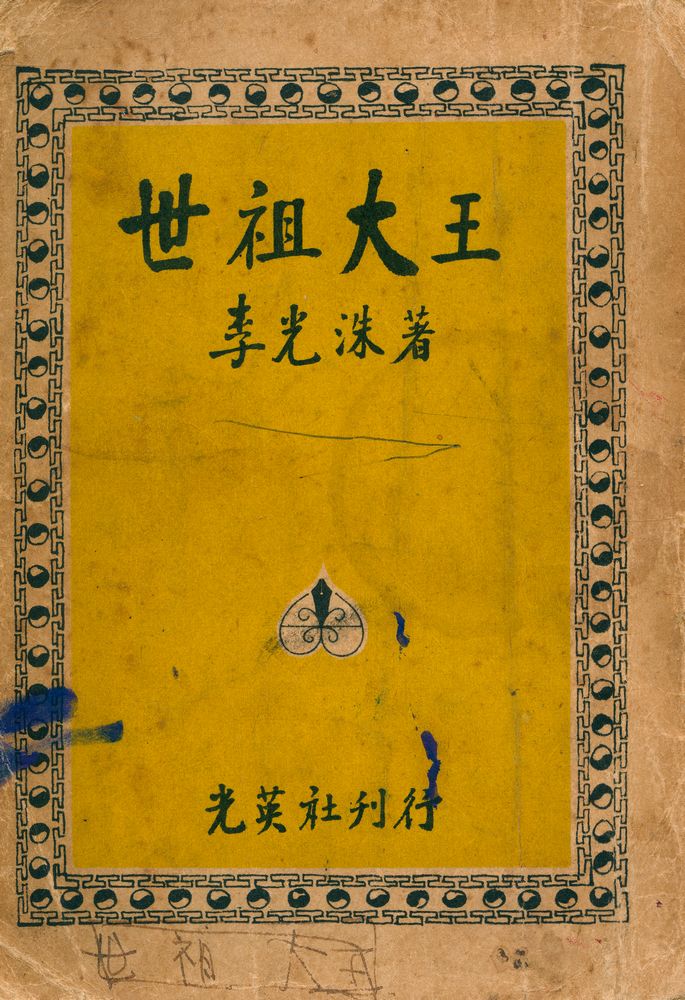 世祖大王
李光洙著
光英社刊行
世祖大王